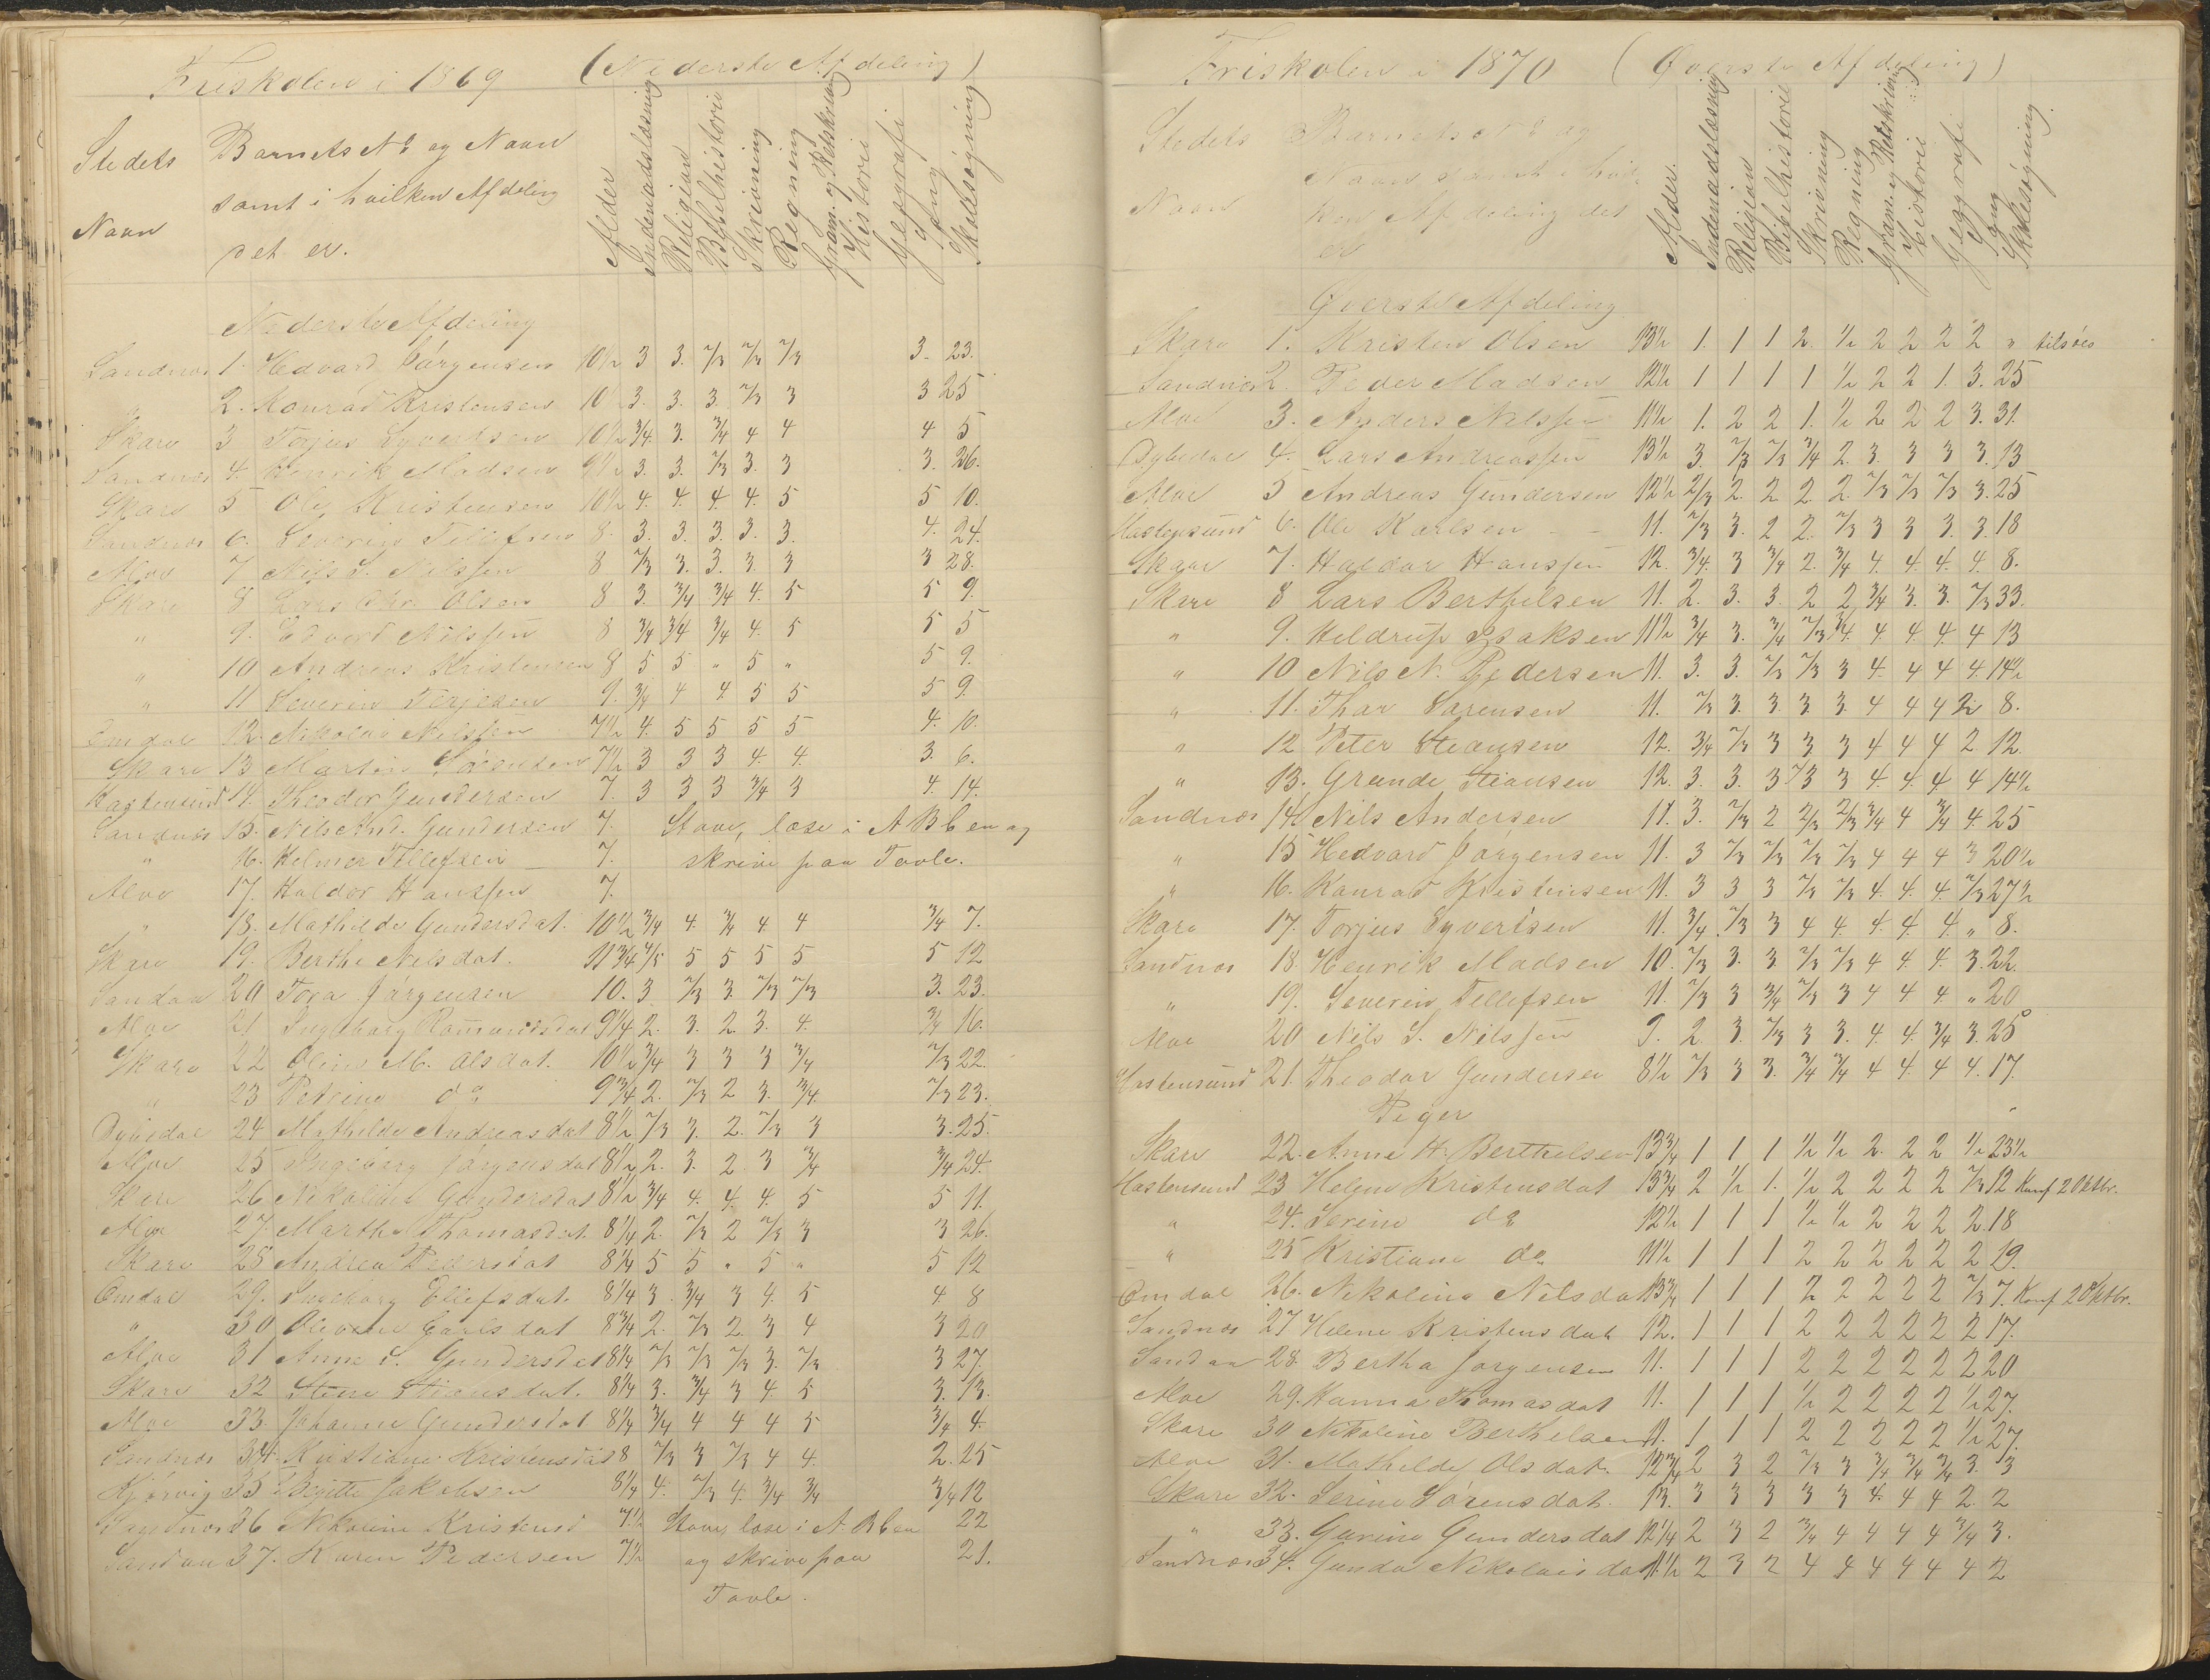 Friskolen i 1869 (Nederste Afdeling)
Stedets Navn
Barnets No og Navn
samt i hvilken Afdeling
det er.
Alder Indenadslæsning Religion Bibelhistorie Skrivning Regning Gram. og Retskrivng Historie Geografi Sang Skolesøgning
Nederste Afdeling
Sandnæs 1. Hedvard Jørgensen 10½ 3 3. 2/3 2/3 2/3 3. 23.
" 2. Konrad Kristensen 10½ 3. 3. 3. 2/3 3 3 25
Skare 3 Torjus Syvertsen 10½ 3/4. 3. 3/4 4 4 4 5
Sandnæs 4. Henrik Madsen 9½ 3. 3. 2/3 3. 3 3. 26.
Skare 5 Ole Kristensen 10½ 4. 4. 4. 4. 5 5 10.
Sandnæs 6. Severin Tellefsen 8. 3. 3. 3. 3. 3. 4. 24.
Alve 7 Nils S. Nilssen 8 2/3 3. 3. 3. 3 3 28.
Skare 8 Lars Chr. Olsen 8 3. 3/4 3/4 4. 5 5 9.
" 9. Edvard Nilssen 8 3/4 3/4 3/4 4. 5 5 5
" 10 Andreas Kristensen 8 5 5 " 5 " 5 9.
" 11 Severin Terjesen 9. 3/4 4 4 5 5 5 9.
Omdal 12. Nikolai Nilssen 7½ 4. 5 5 5 5 4. 10.
Skare 13 Martin Sørensen 7½ 3 3 3 4. 4. 3. 6.
Hastensund 14. Theodor Gundersen 7. 3 3 3 3/4 3 4. 14.
Sandnæs 15. Nils And. Gundersen 7. Stave, læse i A B C en og
" 16. Helmer Tellefsen 7. skrive paa Tavle.
Alve 17. Haldor Hanssen 7.
" 18. Mathilde Gundersdat. 10½ 3/4 4. 3/4 4. 4 3/4 7.
Skare 19. Berthe Nilsdat. 11 3/4 4/5 5 5 5 5 5 12
Sandaa 20 Tora Jørgensen 10. 3. 2/3 3. 2/3 2/3 3. 23.
Alve 21 Ingeborg Romundsdat 9¼ 2. 3. 2. 3. 4. 3/4 16.
Skare 22 Oline M. Olsdat. 10½ 3/4 3 3 3 3/4 2/3 22.
" 23 Petrine do 9¾ 2. 2/3 2 3. 3/4. 2/3 23.
Dybedal 24 Mathilde Andreasdat 8½ 2/3 3. 2. 2/3 3 3. 25.
Alve 25 Ingeborg Jørgensdat 8½ 2. 3. 2. 3 3/4 3/4 24.
Skare 26 Nikoline Gundersdat 8½ 3/4 4. 4. 4. 5 5 11.
Alve 27. Marthe Thomasdat. 8¼ 2. 2/3 2 2/3 3 3 26.
Skare 28 Andrea Pedersdat 8¼ 5 5 " 5 " 5 12
Omdal 29. Ingeborg Ellefsdat. 8¼ 3. 3/4 3 4. 5 4 8
" 30 Olevine Carlsdat 8¾ 2. 2/3 2. 3 4 3 20
Alve 31 Anne S. Gundersdat 8¼ 2/3 2/3 2/3 3. 2/3 3 27.
Skare 32 Stine Stiansdat. 8¼ 3. 3/4 3 4. 5 3. 13.
Alve 33. Johanne Gundersdat 8¼ 3/4 4 4 4 5 3/4 4.
Sandnæs 34. Kristiane Kristensdat 8 2/3 3 2/3 4 4. 2. 25
Kjørvig 35 Birgitte Jakobsen 8¼ 4. 2/3 4. 3/4 3/4 3/4 12
Sandnæs 36 Nikoline Kristensd 7½ Stave, læse i A B C en 22
Sandaa 37. Karen Pedersen 7½ og skrive paa 21.
Tavle.
Friskolen i 1870 (Øverste Afdeling)
Stedets Navn
Barnets No og
Navn samt i hvil-
ken Afdeling det
er
Alder. Indenadslæsning Religion Bibelhistorie Skrivning Regning Gram. og Retskrivning Historie Geografi Sang Skolesøgning
Øverste Afdeling
Skare 1. Kristen Olsen 13½ 1. 1 1 2. ½ 2 2 2 2 " tilsøes
Sandnæs 2. Peder Madsen 12½ 1 1 1 1 ½ 2 2 1. 3. 25
Alve 3. Anders Nilssen 11½ 1. 2 2 1. ½ 2 2 2 3. 31.
Dybedal 4. Lars Andreassen 13½ 3. 2/3 2/3 3/4 2. 3. 3 3 3. 13
Alve 5 Andreas Gundersen 12½ 2/3 2. 2 2 2. 2/3 2/3 2/3 3. 25
Hastensund 6. Ole Karlsen 11. 2/3 3. 2 2. 2/3 3 3 3. 3. 18
Skare 7. Haldor Hanssen 12. 3/4. 3 3/4 2. 3/4 4. 4. 4. 4 8.
Skare 8 Lars Berthelsen 11. 2. 3. 3. 2 2 3/4 3. 3. 2/3 33.
" 9. Heldrup Isaksen 11½ 3/4 3. 3/4 2/3 3/4. 4. 4. 4. 4 13
" 10 Nils N. Pedersen 11. 3. 3. 2/3 2/3 3 4. 4 4 4. 14½
" 11. Thor Sørensen 11. 2/3 3. 3. 3. 3. 4 4 4 2 8.
" 12 Peter Stiansen 12. 3/4 2/3 3 3 3 4 4 4 2 12.
" 13. Grunde Stiansen 12. 3. 3. 3. 3 3 4. 4. 4 4 14½
Sandnæs 14 Nils Andersen 11. 3. 2/3 2 2/3 2/3 3/4 4 3/4 4. 25
" 15 Hedvard Jørgensen 11. 3 2/3 2/3 2/3 2/3 4 4 4 3 20½
" 16. Konrad Kristensen 11. 3 3 3 2/3 2/3 4. 4. 4. 2/3 27½
Skare 17. Torjus Syvertsen 11. 3/4 2/3 3 4 4. 4. 4. 4. " 8.
Sandnæs 18. Henrik Madsen 10. 2/3 3. 3. 2/3 2/3 4 4. 4. 3. 22.
" 19. Severin Tellefsen 11. 2/3 3 3/4 2/3 3 4 4 4. " 20
Alve 20 Nils S. Nilssen 9. 2. 3. 2/3 3 3. 4. 4. 3/4 3. 25
Hastensund 21. Theodor Gundersen 8½ 2/3 3 3. 3/4 3/4 4 4 4 4. 17.
Piger
Skare 22. Anne H. Berthelsen 13¾ 1 1 1 ½ ½ 2. 2 2 ½ 23½
Hastensund 23 Helene Kristensdat 13¾ 2 ½ 1. ½ 2 2 2 2 2/3 12 Konf 2 Oktbr.
" 24. Serine do 12½ 1 1 1 ½ ½ 2 2 2 2. 18
" 25 Kristiane do 11½ 1 1 1 2 2 2 2 2 2 19.
Omdal 26. Nikoline Nilsdat 13¾ 1 1 1 2 2 2 2 2 2/3 7. Konf 2 Oktbr.
Sandnæs 27 Helene Kristensdat 12. 1 1 1 2 2 2 2 2 2 17.
Sandaa 28. Bertha Jørgensen 11. 1 1 1 2 2 2 2 2 2 20
Alve 29. Hanna Thomasdat 11. 1 1 1 ½ 2 2 2 2 ½ 27.
Skare 30 Nikoline Berthelsen 11. 1 1 1 2 2 2 2 2 ½ 27.
Alve 31. Mathilde Olsdat. 12¾ 2 3 2 2/3 3 3/4 3/4 3/4 3. 3
Skare 32. Serine Sørensdat. 13. 3 3 3 3 3 4. 4 4 2. 2
" 33. Gurine Gundersdat 12¼ 2 3 2 3/4 4 4 4 4 3/4 3.
Sandnæs 34. Gunda Nikolaisdat 11½ 2 3 2 4 4 4 4 4 4 2